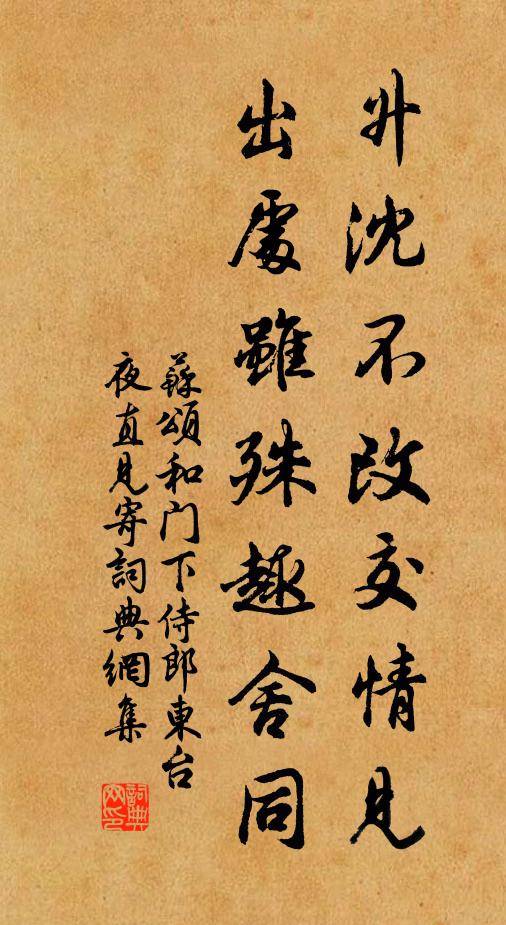 升沈不改交情見
出處雖殊趣舍同
蘇頌和门下侍郎東台
夜直見寄詞典網集
詞典网印